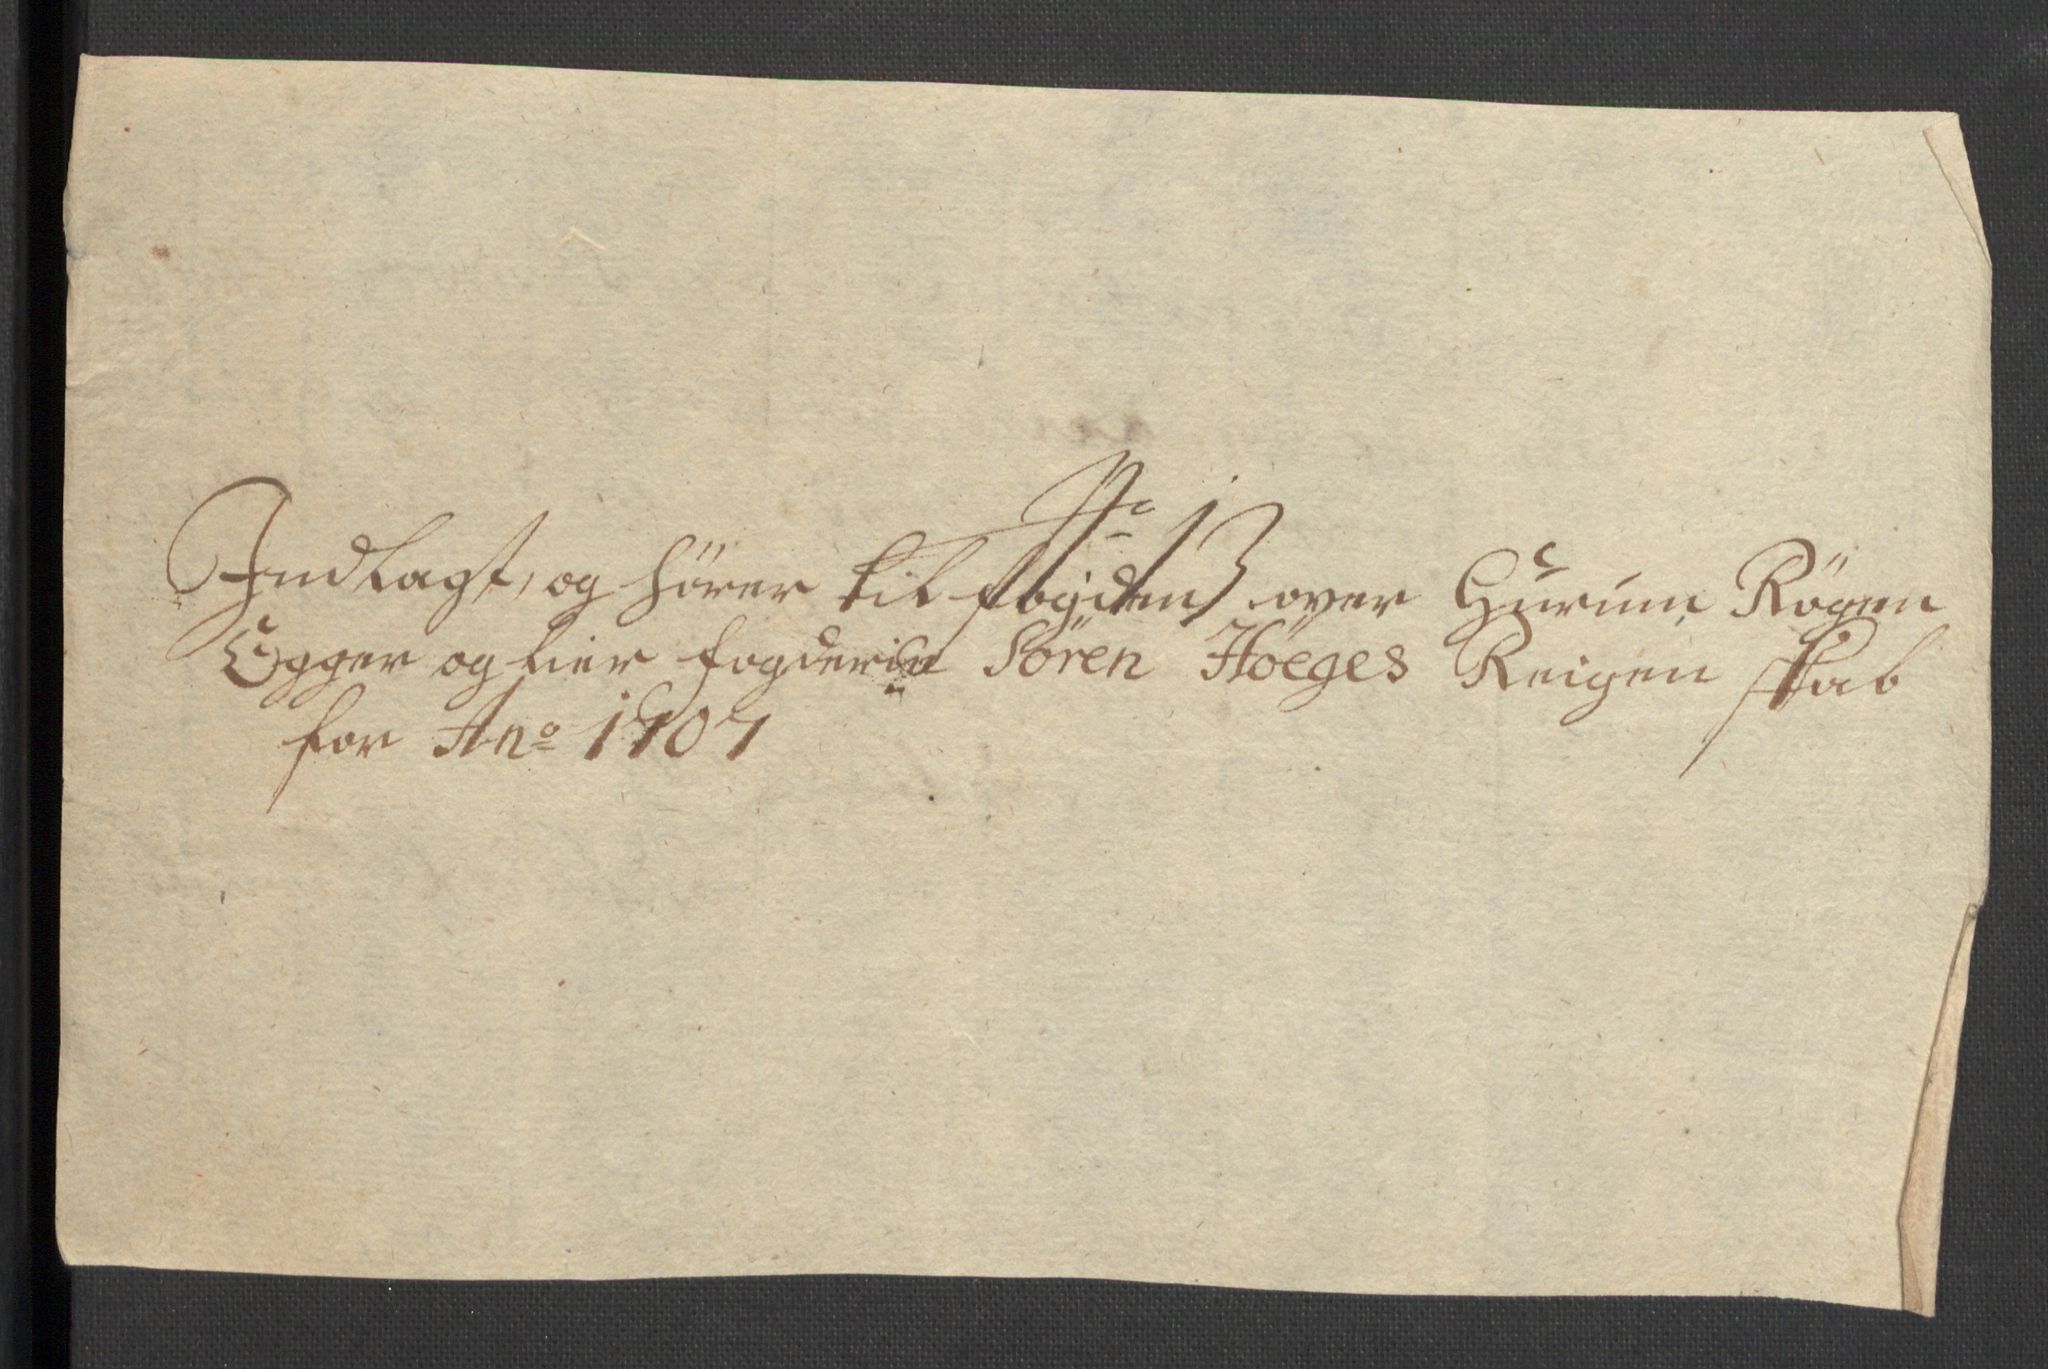 No 13
Indlagt, og hörer til fogdens over Hurum, Rögen
Egger og Lier fogderie Sören Höeges Reigen skab
for Ano 1707